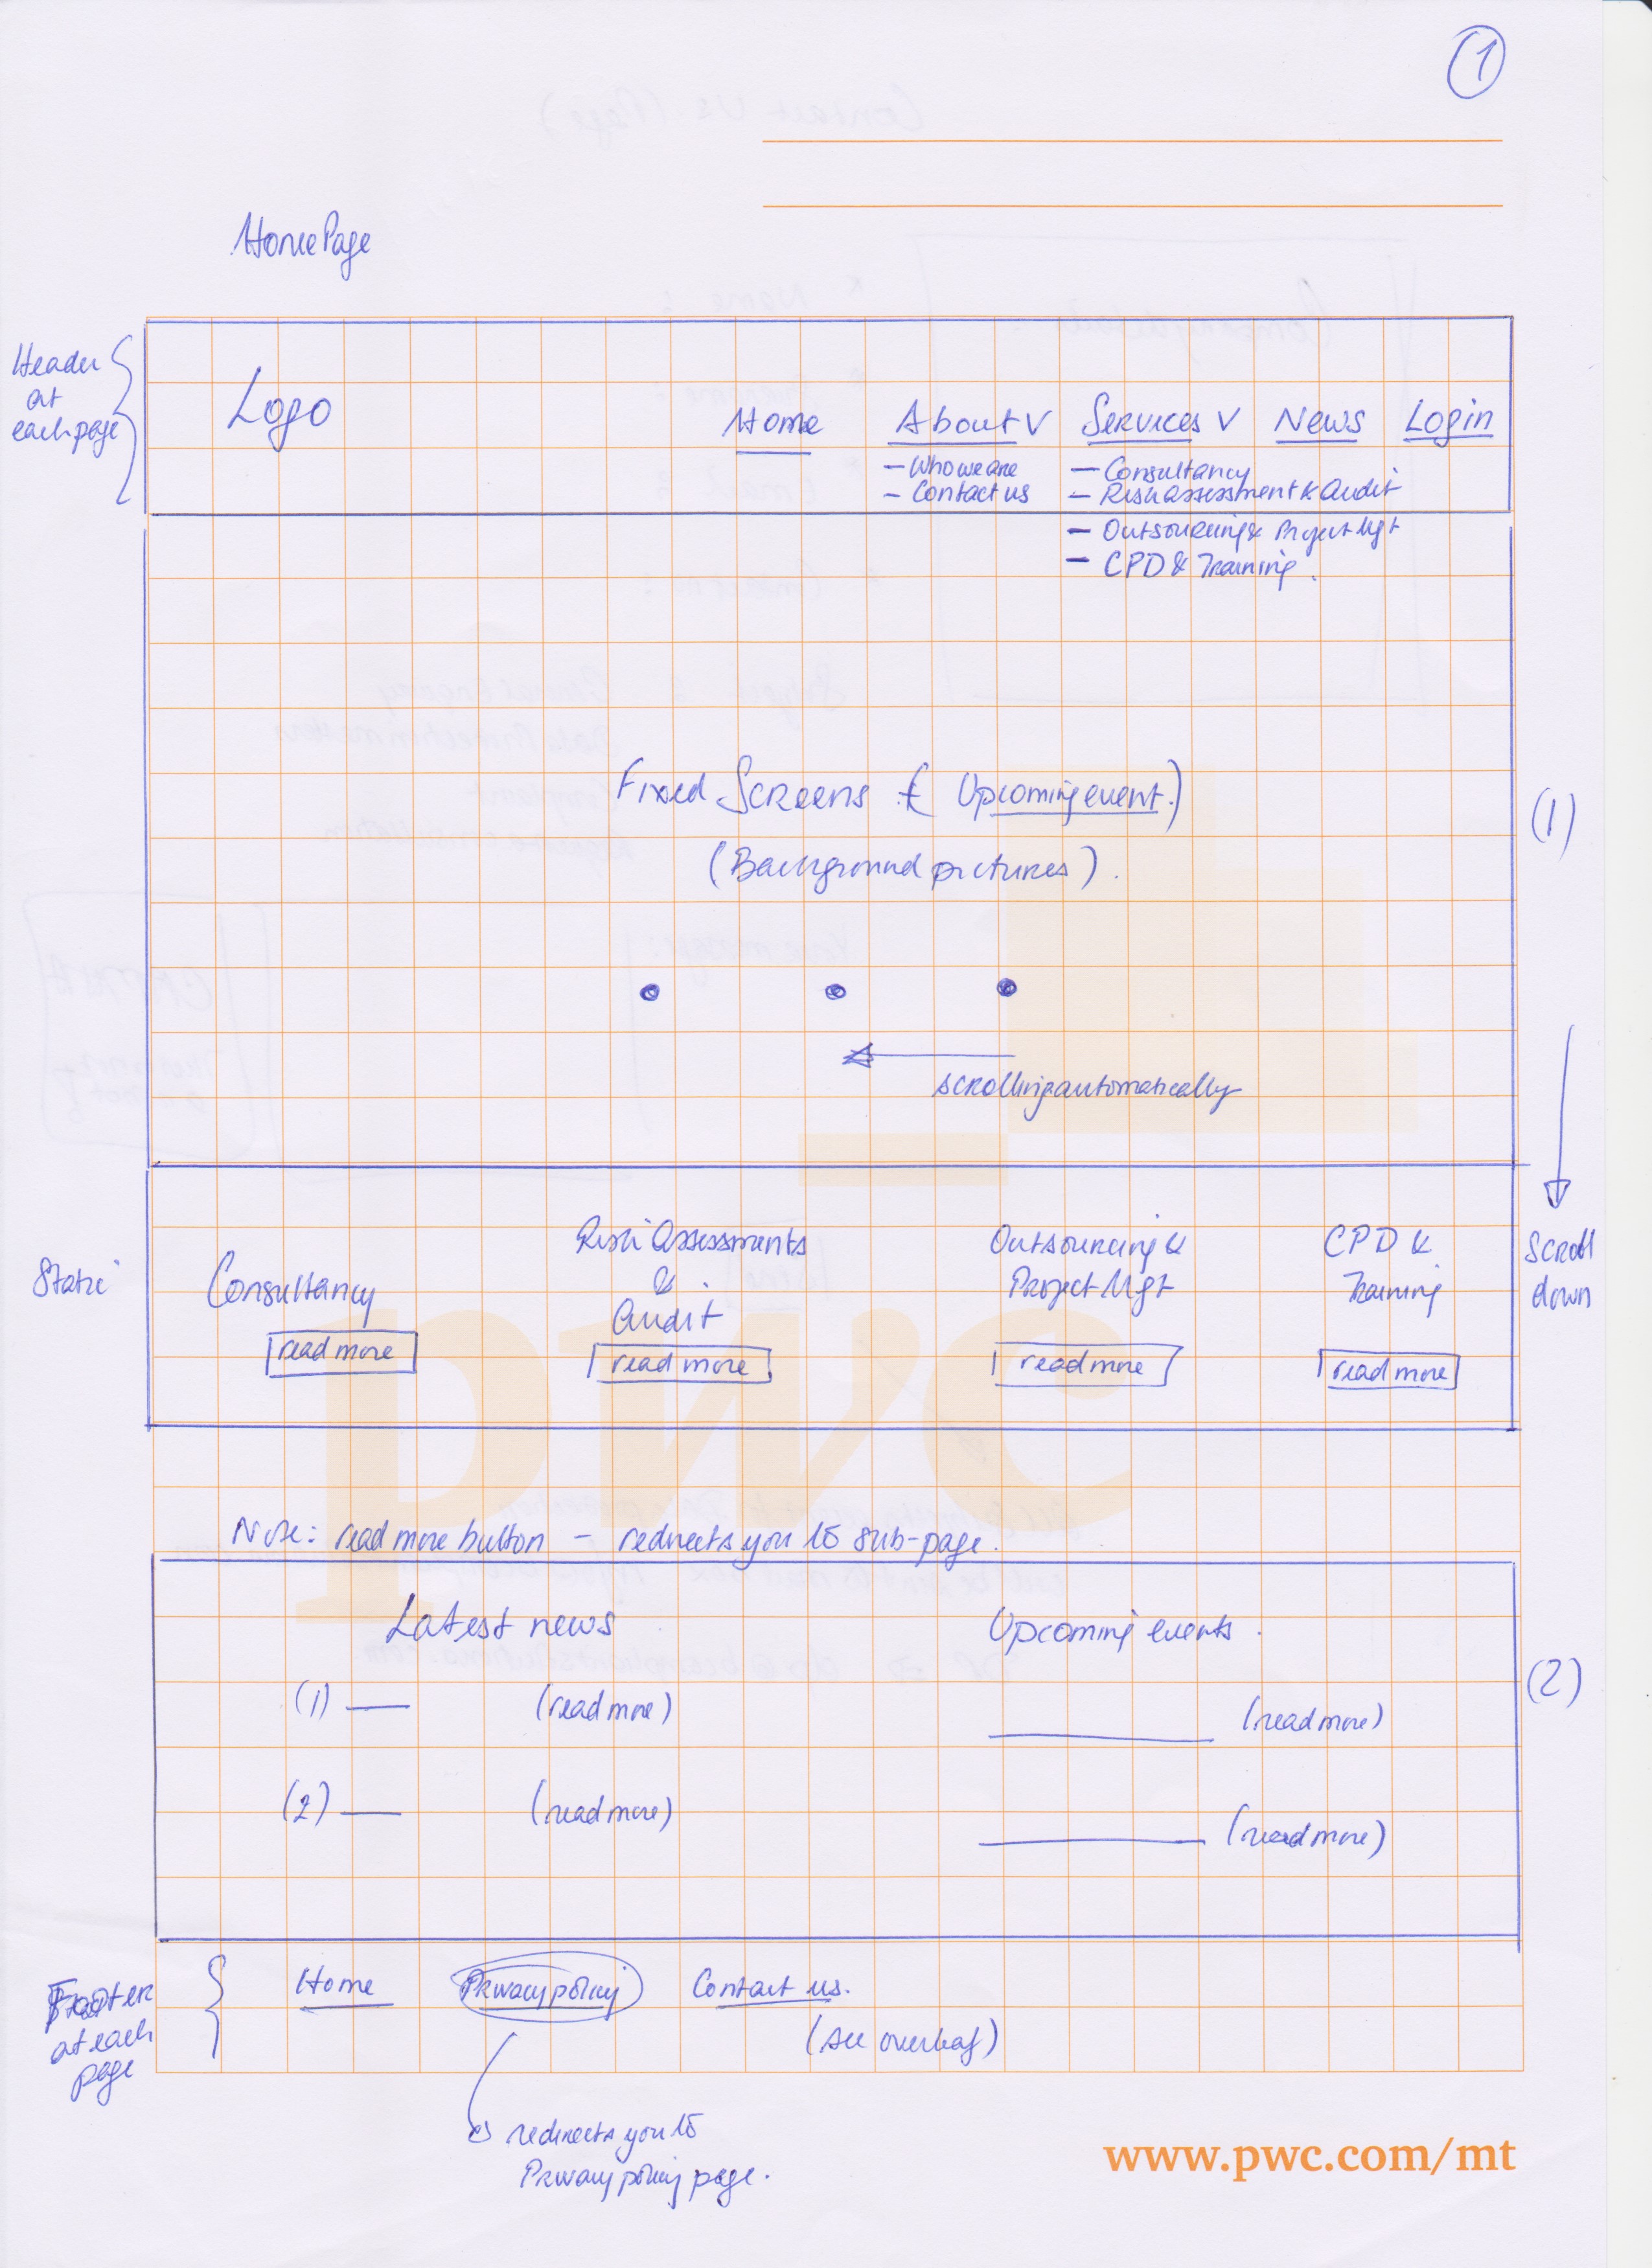 1
HomePage
Header
at
each page
Logo
Home About V Services V News Login
- Who we are
- Contact us
- Consultancy
- Risk assessment & Audit
- Outsourcing & Project Mgt
- CPD & Training.
Fixed Screens ( Upcoming event.)
(Background pictures).
(1)
scrolling automatically
Static
Consultancy
read more
Risk Assessments
&
Audit
read more
Outsourcing &
Project Mgt
read more
CPD &
Training
read more
Scroll
down
pwc
Note: read more button - redirects you to sub-page.
Latest news Upcoming events.
(1) — (read more) (read more)
(2) — (read more) (read more)
(2)
Footer
at each
page
Home Privacy policy Contact us.
(see overleaf)
redirects you to
Privacy policy page.
www.pwc.com/mt